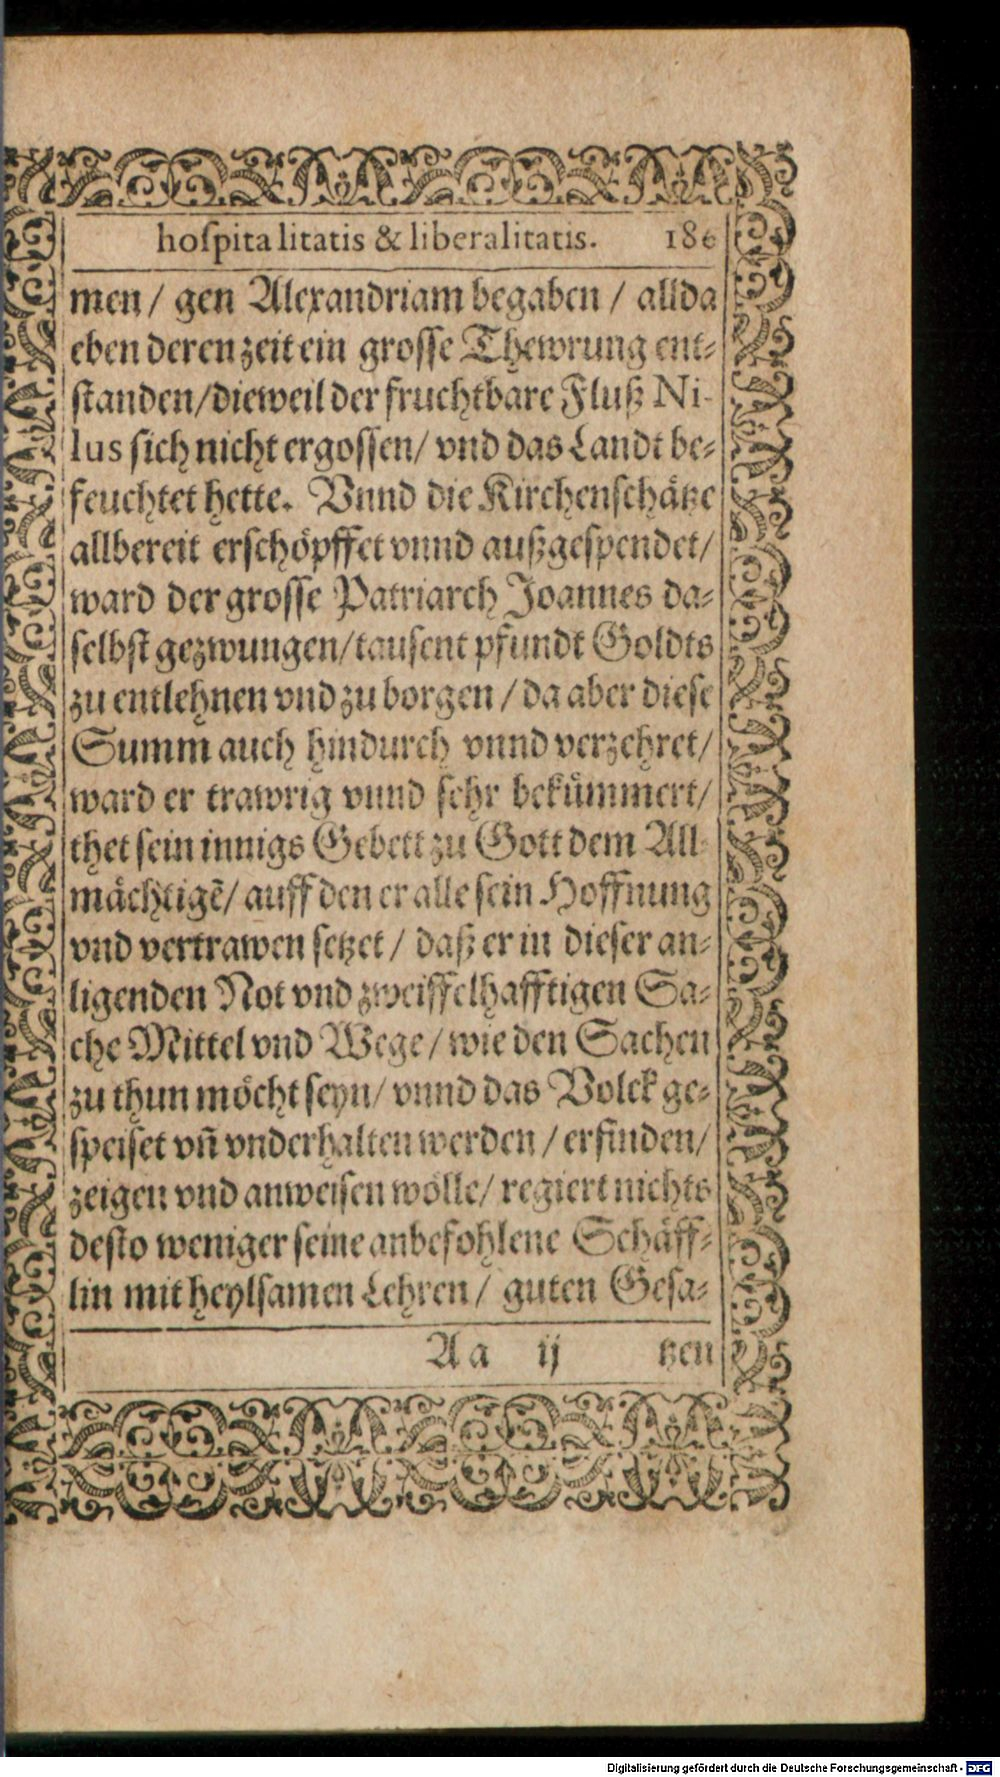 hoſpitalitatis & liberalitatis. 186
men / gen Alexandriam begaben / allda
eben deren zeit ein groſſe Thewrung ent⸗
ſtanden / dieweil der fruchtbare Fluß Ni-
lus ſich nicht ergoſſen / vnd das Landt be⸗
feuchtet hette. Vnnd die Kirchenſchätze
allbereit erſchöpffet vnnd außgeſpendet /
ward der groſſe Patriarch Joannes da⸗
ſelbſt gezwungen / tauſent pfundt Goldts
zu entlehnen vnd zu borgen / da aber dieſe
Summ auch hindurch vnnd verzehret /
ward er trawrig vnnd ſehr bekümmert /
thet ſein innigs Gebett zu Gott dem All⸗
mächtigẽ / auff den er alle ſein Hoffnung
vnd vertrawen ſetzet / daß er in dieſer an⸗
ligenden Not vnd zweiffelhafftigen Sa⸗
che Mittel vnd Wege / wie den Sachen
zu thun möcht ſeyn / vnnd das Volck ge⸗
ſpeiſet vñ vnderhalten werden / erfinden /
zeigen vnd anweiſen wölle / regiert nichts
deſto weniger ſeine anbefohlene Schäff⸗
lin mit heylſamen Lehren / guten Geſa⸗
Aa ij tzen
Digitalisierung gefördert durch die Deutsche Forschungsgemeinschaft - DFG